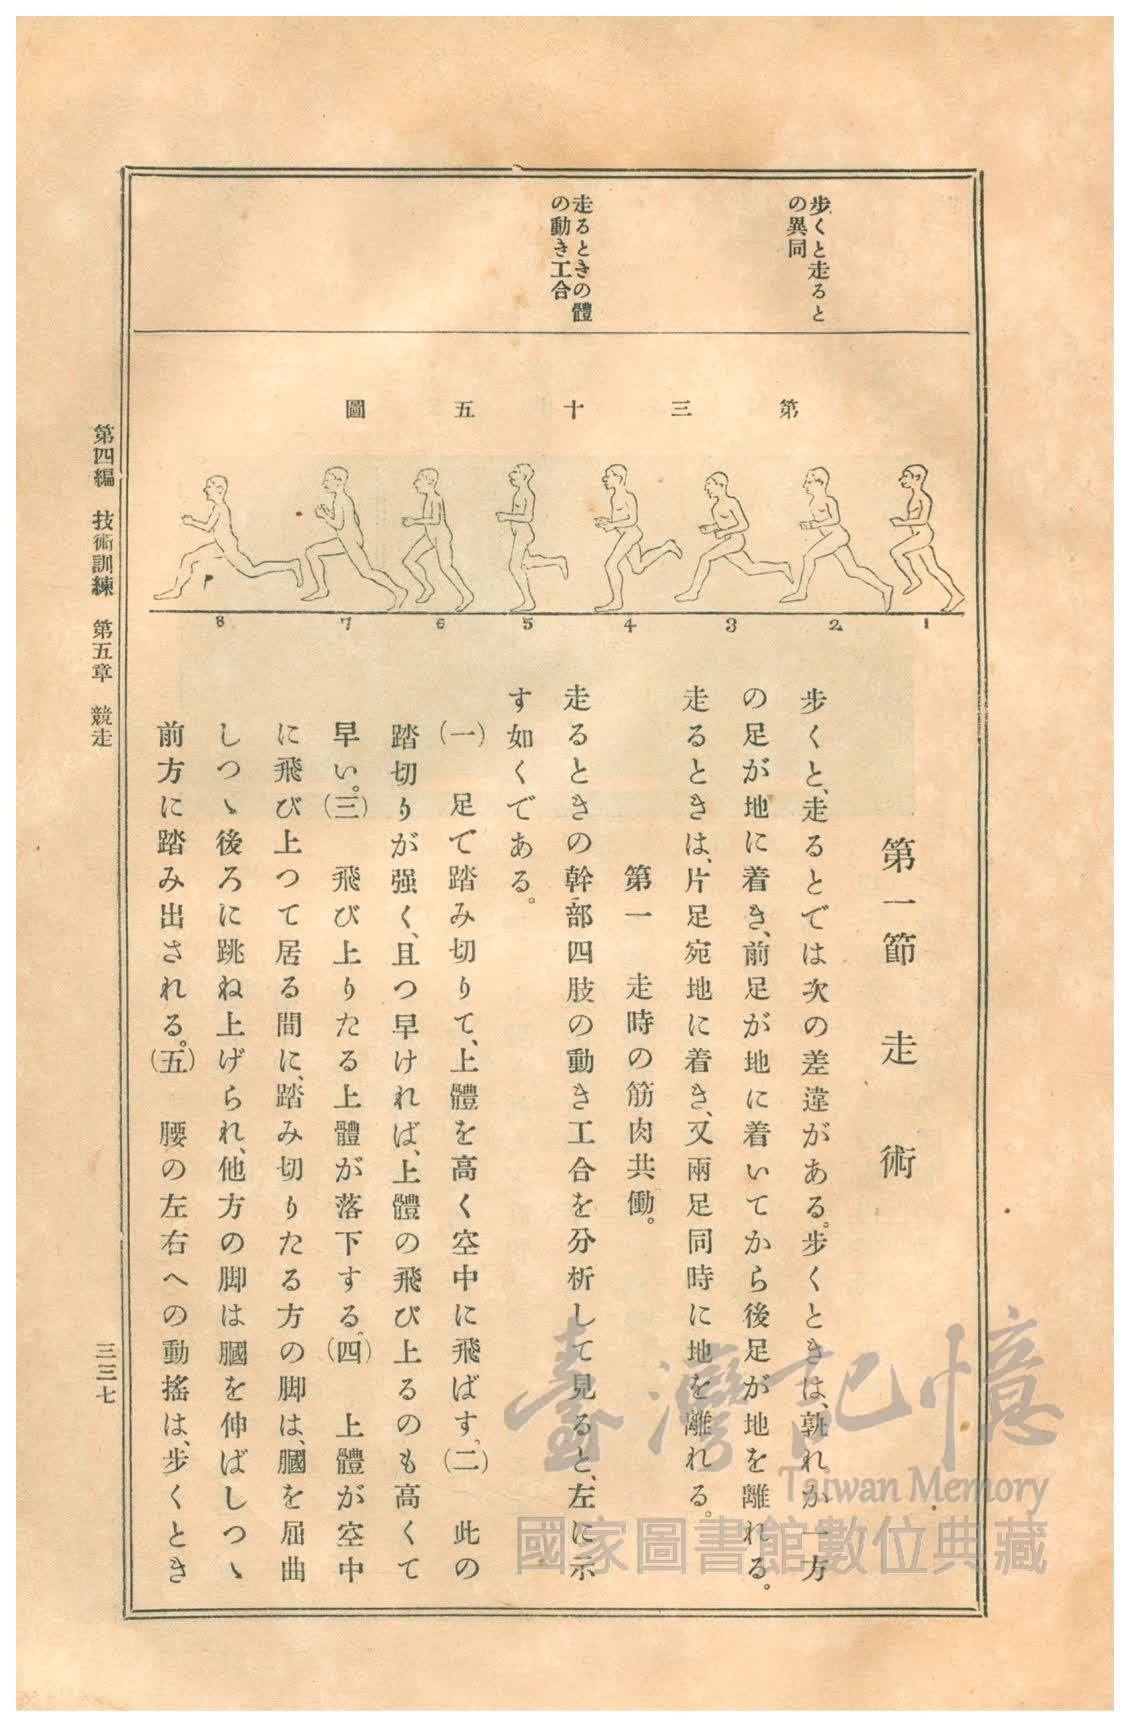 歩くと走ると
の異同
走るときの體
の動き工合
第三十五圖
8 7 6 5 4 3 2 1
第一節 走術
歩くと、走るとでは次の差違がある。歩くときは、孰れか一方
の足が地に着き、前足が地に着いてから後足が地を離れる。
走るときは、片足宛地に着き、又兩足同時に地を離れる。
第一 走時の筋肉共働。
走るときの幹部四肢の動き工合を分析して見ると、左に示
す如くである。
(一) 足で踏み切りて、上體を高く空中に飛ばす。(二) 此の
踏切りが强く、且つ早ければ、上體の飛び上るのも高くて
早い。(三) 飛び上りたる上體が落下する。(四) 上體が空中
に飛び上つて居る間に、踏み切りたる方の脚は、膕を屈曲
しつゝ後ろに跳ね上げられ、他方の脚は膕を伸ばしつゝ
前方に踏み出される。(五) 腰の左右への動搖は、歩くとき
第四編 技術訓練 第五章 競走
三三七
臺灣記憶
Taiwan Memory
國家圖書館數位典藏